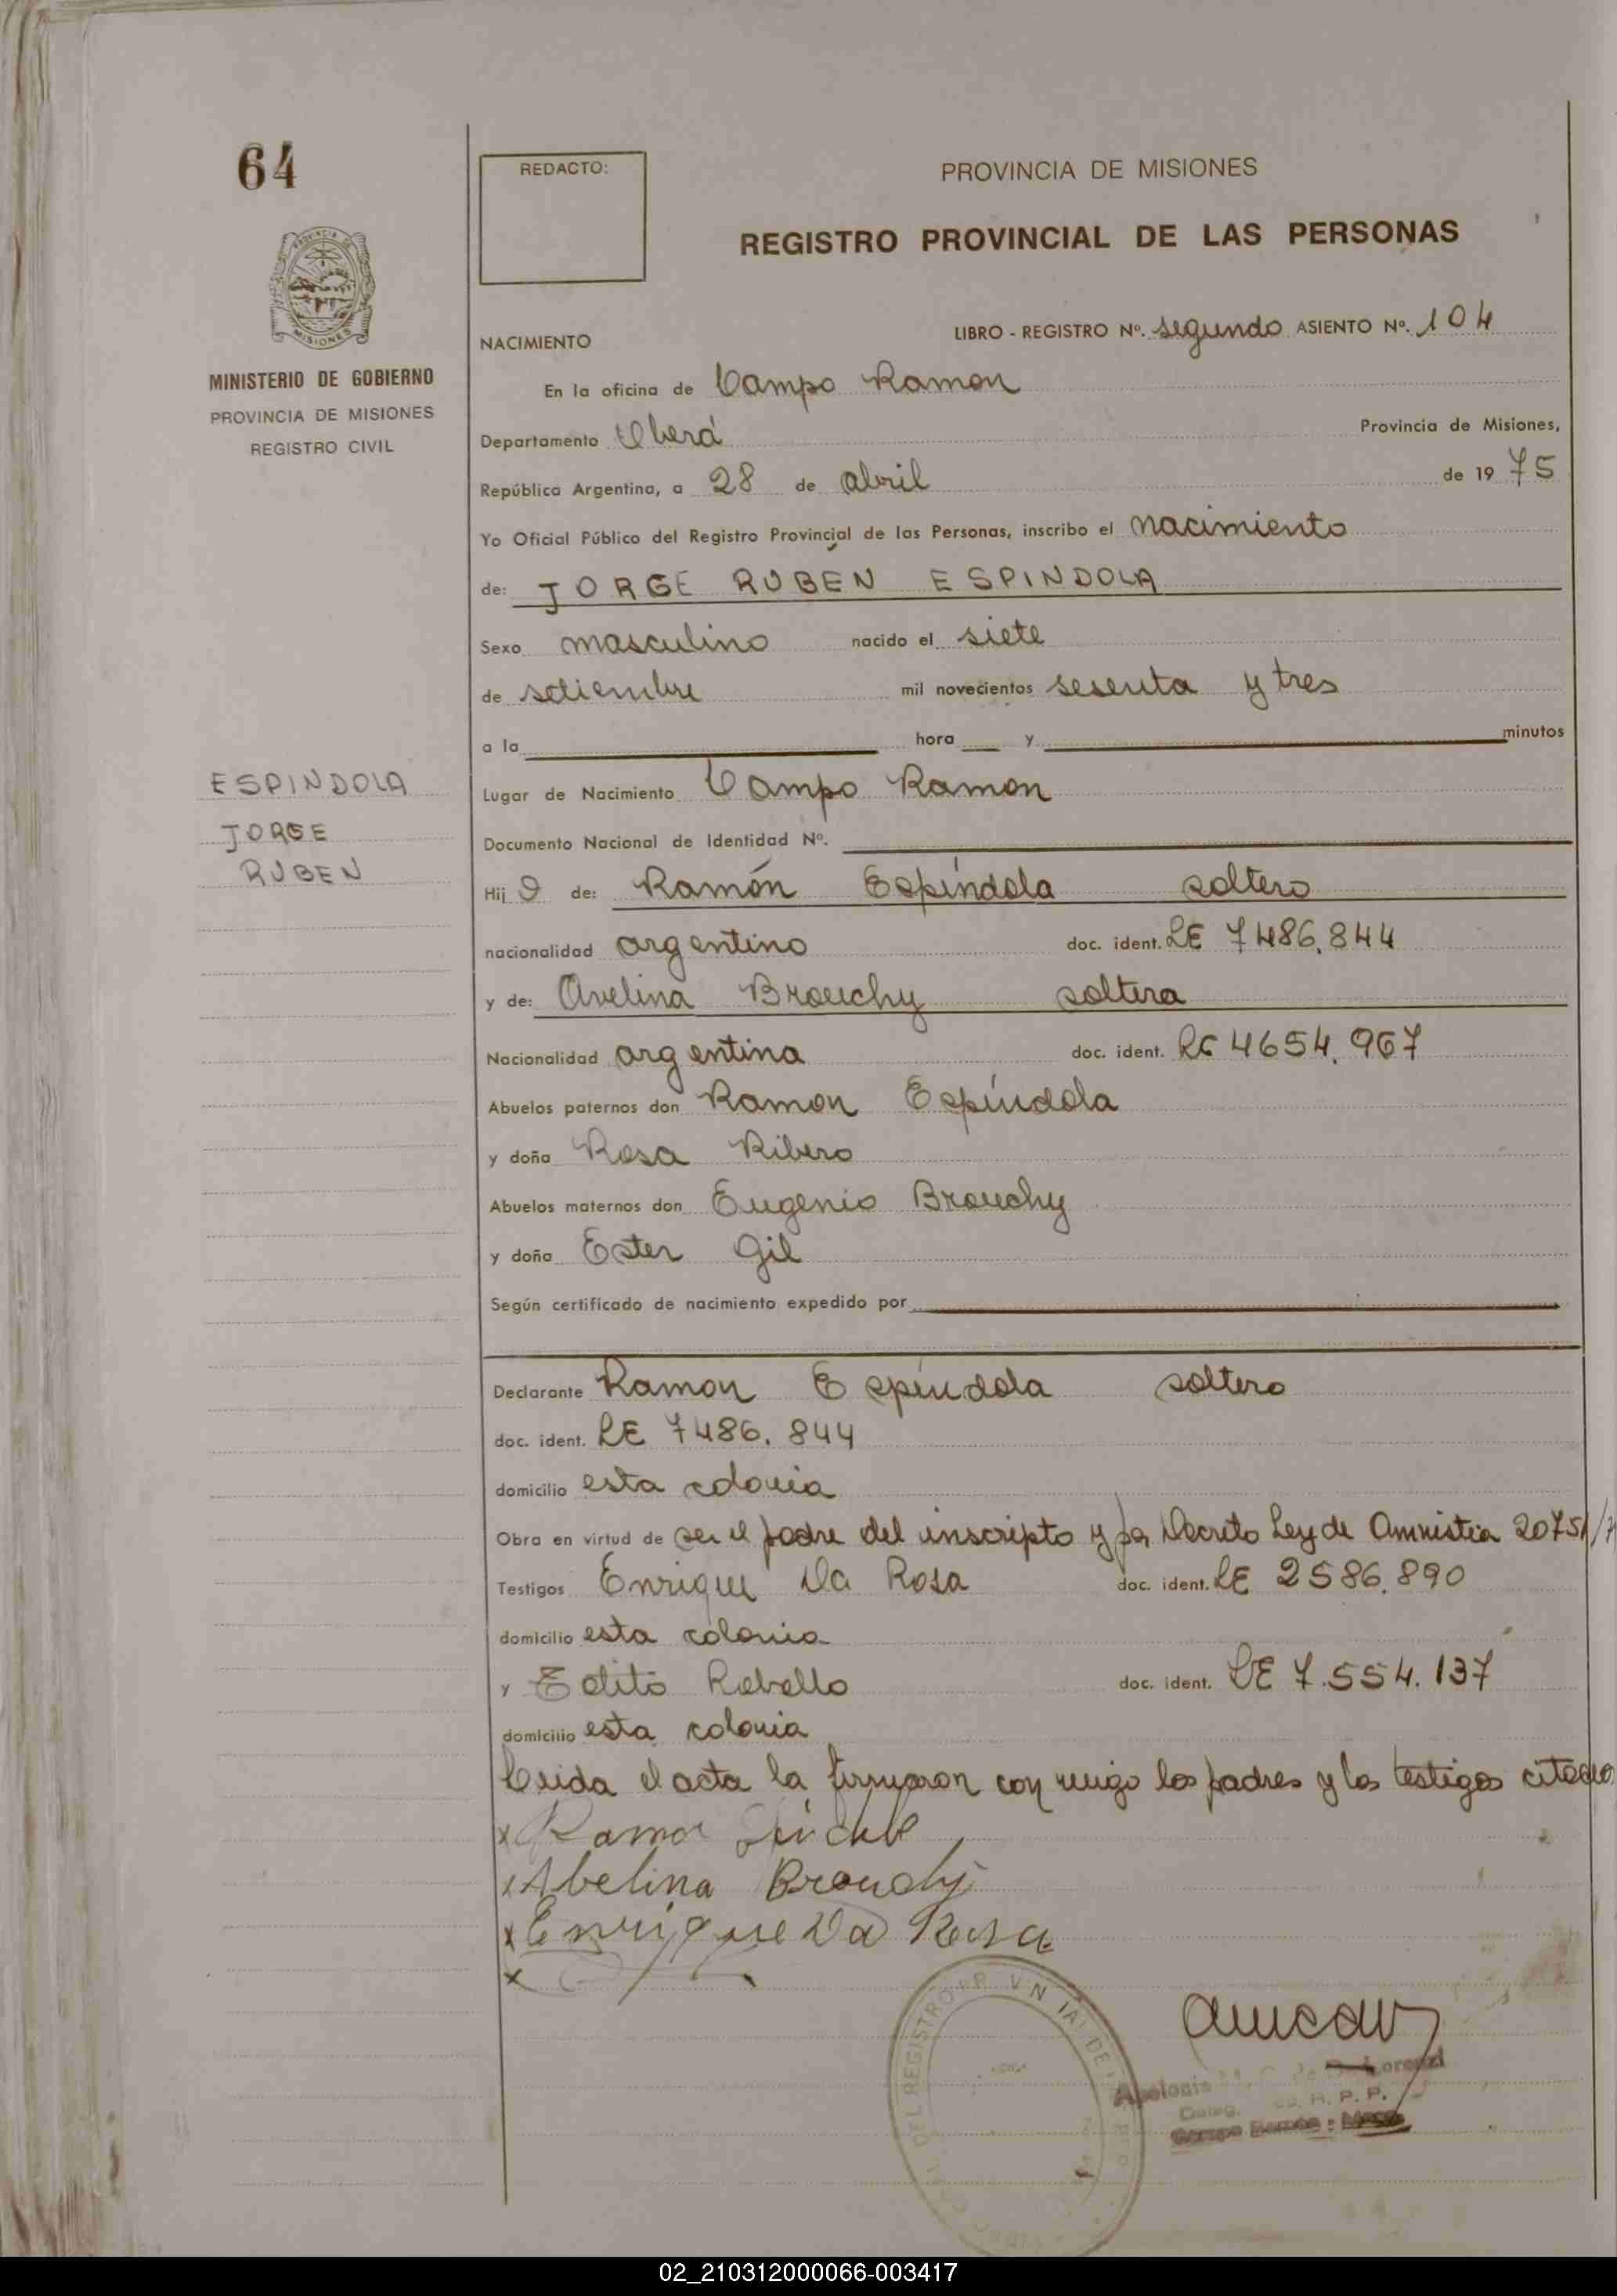 64
REDACTO:
PROVINCIA DE MISIONES
REGISTRO PROVINCIAL DE LAS PERSONAS
PROVINCIA DE
MISIONES
MINISTERIO DE GOBIERNO
PROVINCIA DE MISIONES
REGISTRO CIVIL
ESPINDOLA
JORGE
RUBEN
NACIMIENTO LIBRO - REGISTRO Nº. segundo ASIENTO Nº. 104
En la oficina de Campo Ramon
Departamento Oberá Provincia de Misiones,
República Argentina, a 28 de abril de 1975
Yo Oficial Público del Registro Provincial de las Personas, inscribo el nacimiento
de: JORGE RUBEN ESPINDOLA
Sexo masculino nacido el siete
de setiembre mil novecientos sesenta y tres
a la hora y minutos
Lugar de Nacimiento Campo Ramon
Documento Nacional de Identidad Nº.
Hijo de: Ramón Espíndola soltero
nacionalidad argentino doc. ident. LE 7486.844
y de: Avelina Brouchy soltera
Nacionalidad argentina doc. ident. LC 4654.967
Abuelos paternos don Ramon Espíndola
y doña Rosa Ribero
Abuelos maternos don Eugenio Brouchy
y doña Ester Gil
Según certificado de nacimiento expedido por
Declarante Ramon Espíndola soltero
doc. ident. LE 7486.844
domicilio esta colonia
Obra en virtud de ser el padre del inscripto y por Decreto Ley de Amnistia 20751/7
Testigos Enrique Da Rosa doc. ident. LE 2586.890
domicilio esta colonia
y Edito Rebollo doc. ident. LE 7.554.137
domicilio esta colonia
Leida el acta la firmaron con migo los padres y los testigos citado
x Ramon
x Abelina Brouchy
x Enrique Da Rosa
x
DEL REGISTRO
Lorenzi
R. P. P.
Campo Ramón - Mnes.
02_210312000066-003417